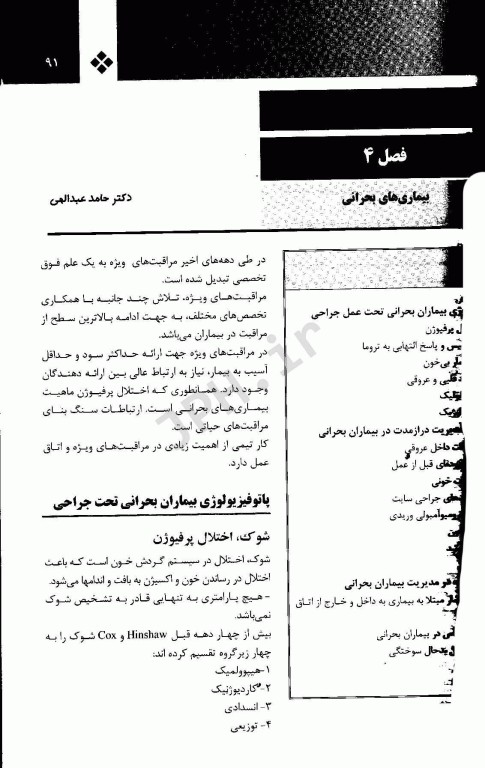 ۹۱
فصل ۴
بیماری‌های بحرانی
دکتر حامد عبدالهی
در طی دهه‌های اخیر مراقبت‌های ویژه به یک علم فوق
تخصصی تبدیل شده است.
مراقبت‌های ویژه، تلاش چند جانبه با همکاری
تخصص‌های مختلف، به جهت ادامه بالاترین سطح از
مراقبت در بیماران می‌باشد.
در مراقبت‌های ویژه جهت ارائه حداکثر سود و حداقل
آسیب به بیمار، نیاز به ارتباط عالی بین ارائه دهندگان
وجود دارد. همانطوری که اختلال پرفیوژن ماهیت
بیماری‌های بحرانی است. ارتباطات سنگ بنای
مراقبت‌های حیاتی است.
کار تیمی از اهمیت زیادی در مراقبت‌های ویژه و اتاق
عمل دارد.
پاتوفیزیولوژی بیماران بحرانی تحت جراحی
شوک، اختلال پرفیوژن
شوک، اختلال در سیستم گردش خون است که باعث
اختلال در رساندن خون و اکسیژن به بافت و اندامها می‌شود.
- هیچ پارامتری به تنهایی قادر به تشخیص شوک
نمی‌باشد.
بیش از چهار دهه قبل Hinshaw و Cox شوک را به
چهار زیرگروه تقسیم کرده اند:
۱-هیپوولمیک
۲- کاردیوژنیک
۳- انسدادی
۴- توزیعی
بیماران بحرانی تحت عمل جراحی
پرفیوژن
و پاسخ التهابی به تروما
بی‌خون
و عروقی
درازمدت در بیماران بحرانی
داخل عروقی
قبل از عمل
خونی
جراحی سایت
وریدی
مدیریت بیماران بحرانی
مبتلا به بیماری به داخل و خارج از اتاق
در بیماران بحرانی
سوختگی
JPH.ir